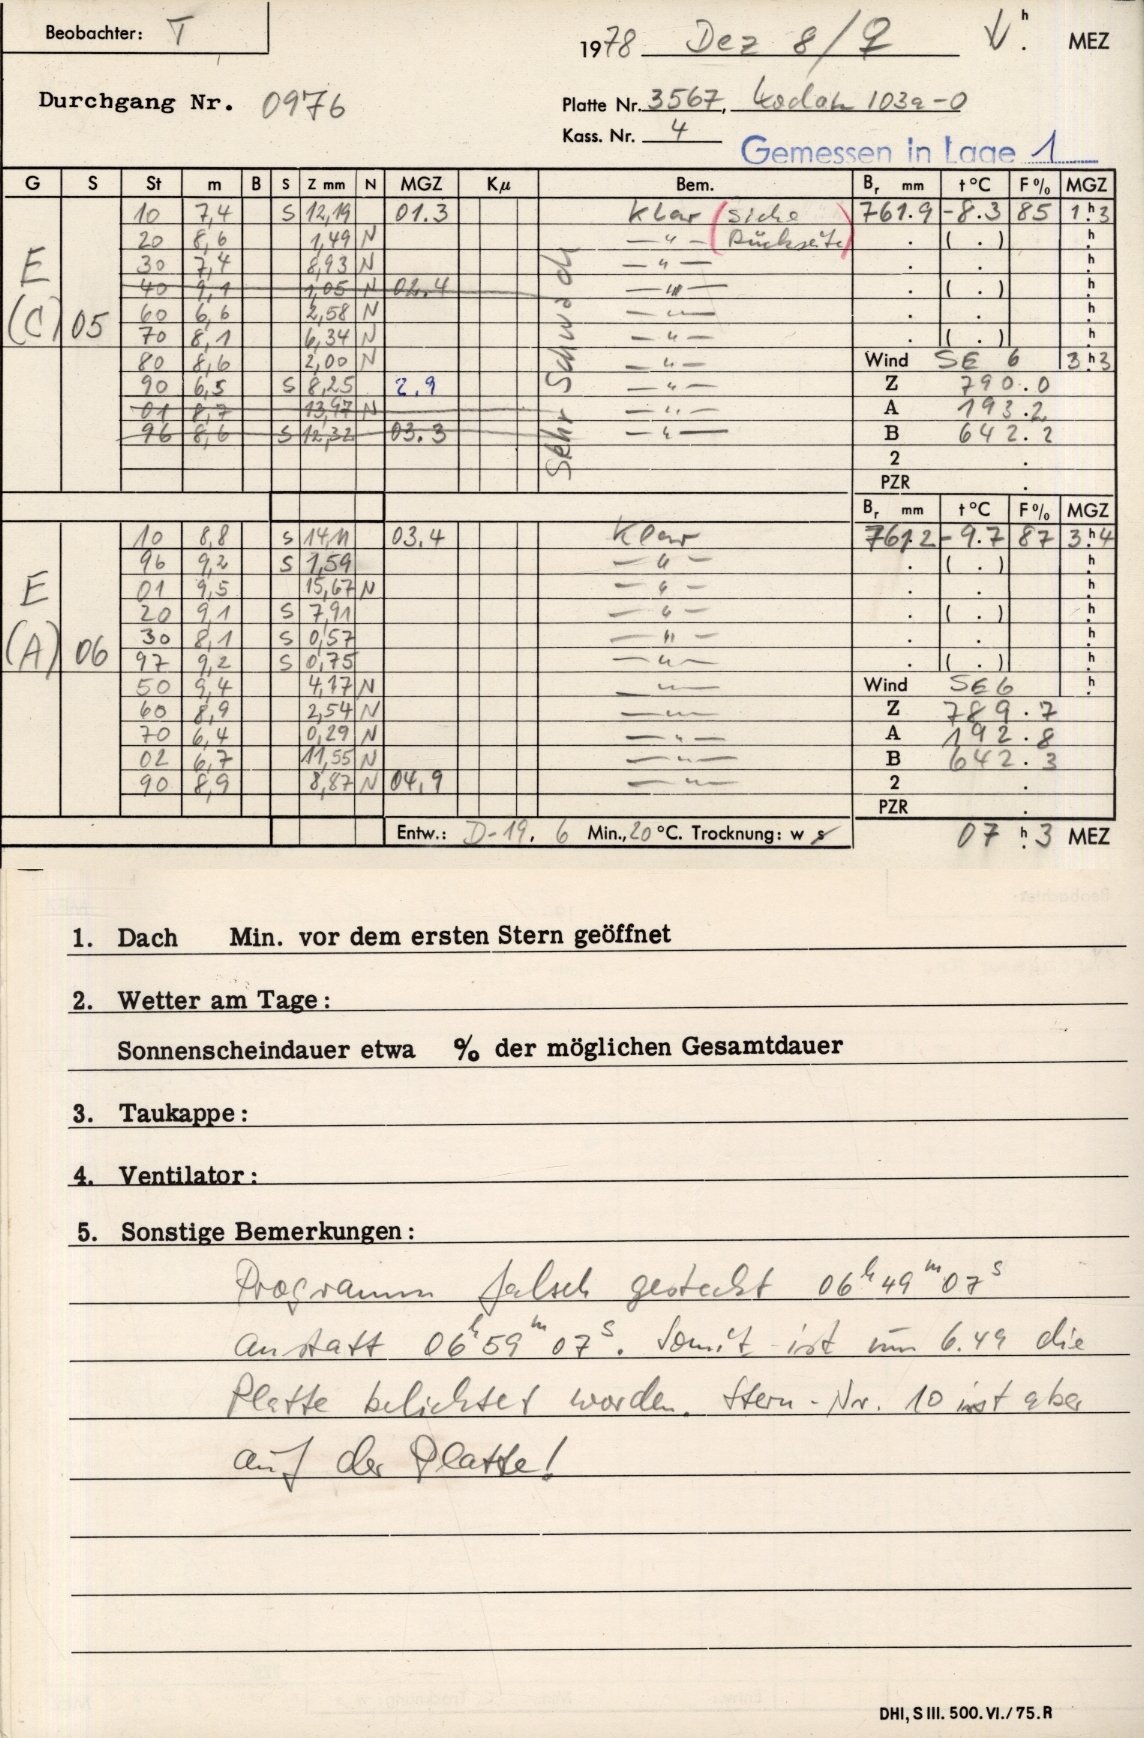 Beobachter: T
1978 Dez 8/9 h . MEZ
Durchgang Nr. 0976
Platte Nr. 3567, Kodak 103a-O
Kass. Nr. 4
Gemessen in Lage 1
G S St m B S Z mm N MGZ Kμ Bem. Br mm t °C F % MGZ
10 7,4 S 12,19 01.3 Klar (siehe 761.9 -8.3 85 1.h3
20 8,6 1,49 N — " — Rückseite) . ( . ) h.
30 7,4 8,93 N — " — . . h.
40 9,1 1,05 N 02.4 — " — . ( . ) h.
60 6,6 2,58 N — " — . . h.
E (C) 05
70 8,1 6,34 N — " — . ( . ) h.
80 8,6 2,00 N — " — Wind SE 6 3.h3
90 6,5 S 8,25 2,9 — " — Z 790.0
01 8,7 13,97 N — " — A 193.2
96 8,6 S 12,32 03.3 — " — B 642.2
Sehr Schwach
2 .
PZR .
Br mm t °C F % MGZ
10 8,8 S 14,11 03.4 Klar 761.2 -9.7 87 3.h4
96 9,2 S 1,59 — " — . ( . ) h.
01 9,5 15,67 N — " — . . h.
20 9,1 S 7,91 — " — . ( . ) h.
30 8,1 S 0,57 — " — . . h.
E (A) 06
97 9,2 S 0,75 — " — . ( . ) h.
50 9,4 4,17 N — " — Wind SE6 h.
60 8,9 2,54 N — " — Z 789.7
70 6,4 0,29 N — " — A 192.8
02 6,7 11,55 N — " — B 642.3
90 8,9 8,87 N 04,9 — " — 2 .
PZR .
Entw.: D-19. 6 Min., 20 °C. Trocknung: w s 07 h. 3 MEZ
1. Dach Min. vor dem ersten Stern geöffnet
2. Wetter am Tage:
Sonnenscheindauer etwa % der möglichen Gesamtdauer
3. Taukappe:
4. Ventilator:
5. Sonstige Bemerkungen:
Programm falsch gesteckt 06h49m07s
anstatt 06h59m07s. Somit ist um 6.49 die
Platte belichtet worden. Stern-Nr. 10 ist aber
auf der Platte!
DHI, S III. 500. VI./75. R